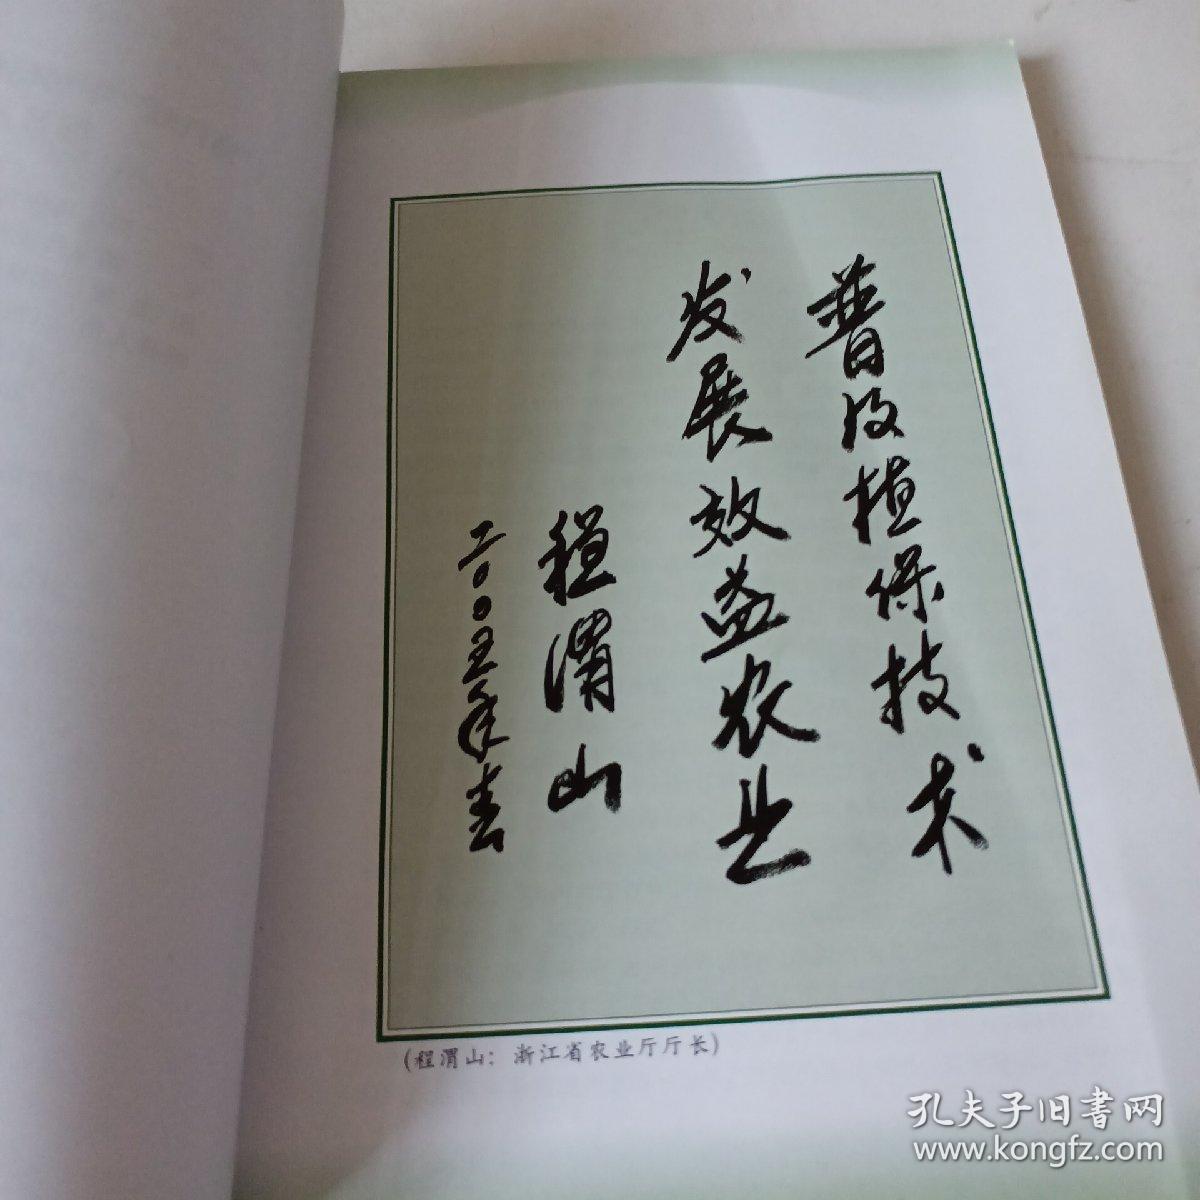 普及植保技术
发展效益农业
程渭山
二〇〇五年春
(程渭山：浙江省农业厅厅长)
孔夫子旧书网
www.kongfz.com